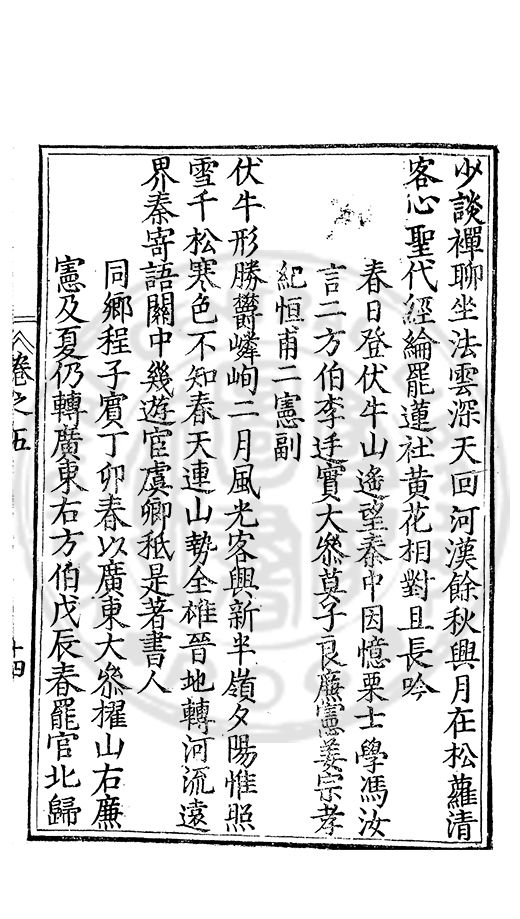 少談禪聊坐法雲深天回河漢餘秋興月在松蘿清
客心聖代經綸罷蓮社黄花相對且長吟
春日登伏牛山遙望秦中因憶栗士學馮汝
言二方伯李廷實大叅莫子良廉憲姜宗孝
紀恒甫二憲副
伏牛形勝欝嶙峋二月風光客興新半嶺夕陽惟照
雪千松寒色不知春天連山勢全雄晉地轉河流遠
界秦寄語關中幾遊宦虞卿秪是著書人
同鄉程子賓丁卯春以廣東大叅擢山右廉
憲及夏仍轉廣東右方伯戊辰春罷官北歸
卷之五
十四